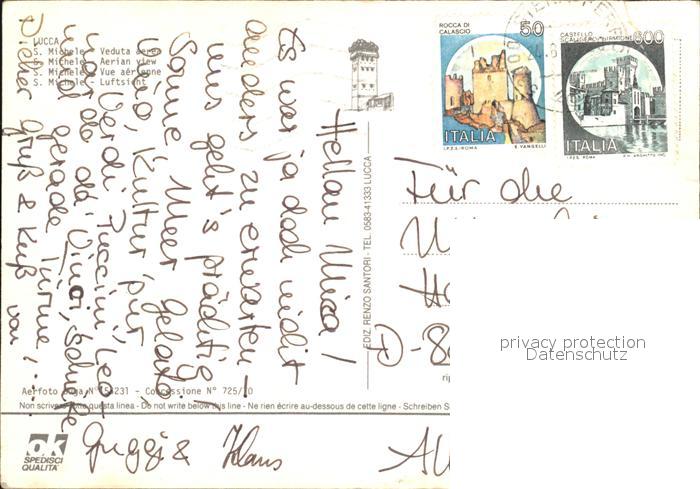 LUCCA
S. Michele - Veduta aerea
S. Michele - Aerian view
S. Michele - Vue aérienne
S. Michele - Luftsicht
ROCCA DI
CALASCIO
50
ITALIA
I.P.Z.S.-ROMA E. VANGELLI
CASTELLO
SCALIGERO-SIRMIONE
600
ITALIA
I.P.Z.S. ROMA
EDIZ. RENZO SANTORI - TEL. 0583-41333 LUCCA
Hellau
Es war ja doch nicht
anders zu erwarten -
uns geht's prächtig.
Sonne, Meer, Gelato,
Vino, Kultur pur
Verdi, Puccini, Leo-
nardo da Vinci, schiefe
und gerade Türme! ...
Gruß & Kuß von
& Klaus
Für die
D-8
privacy protection
Datenschutz
Concessione N° 725/
Non scrivere sotto questa linea - Do not write below this line - Ne rien écrire au-dessous de cette ligne - Schreiben S
ok
SPEDISCI
QUALITA'